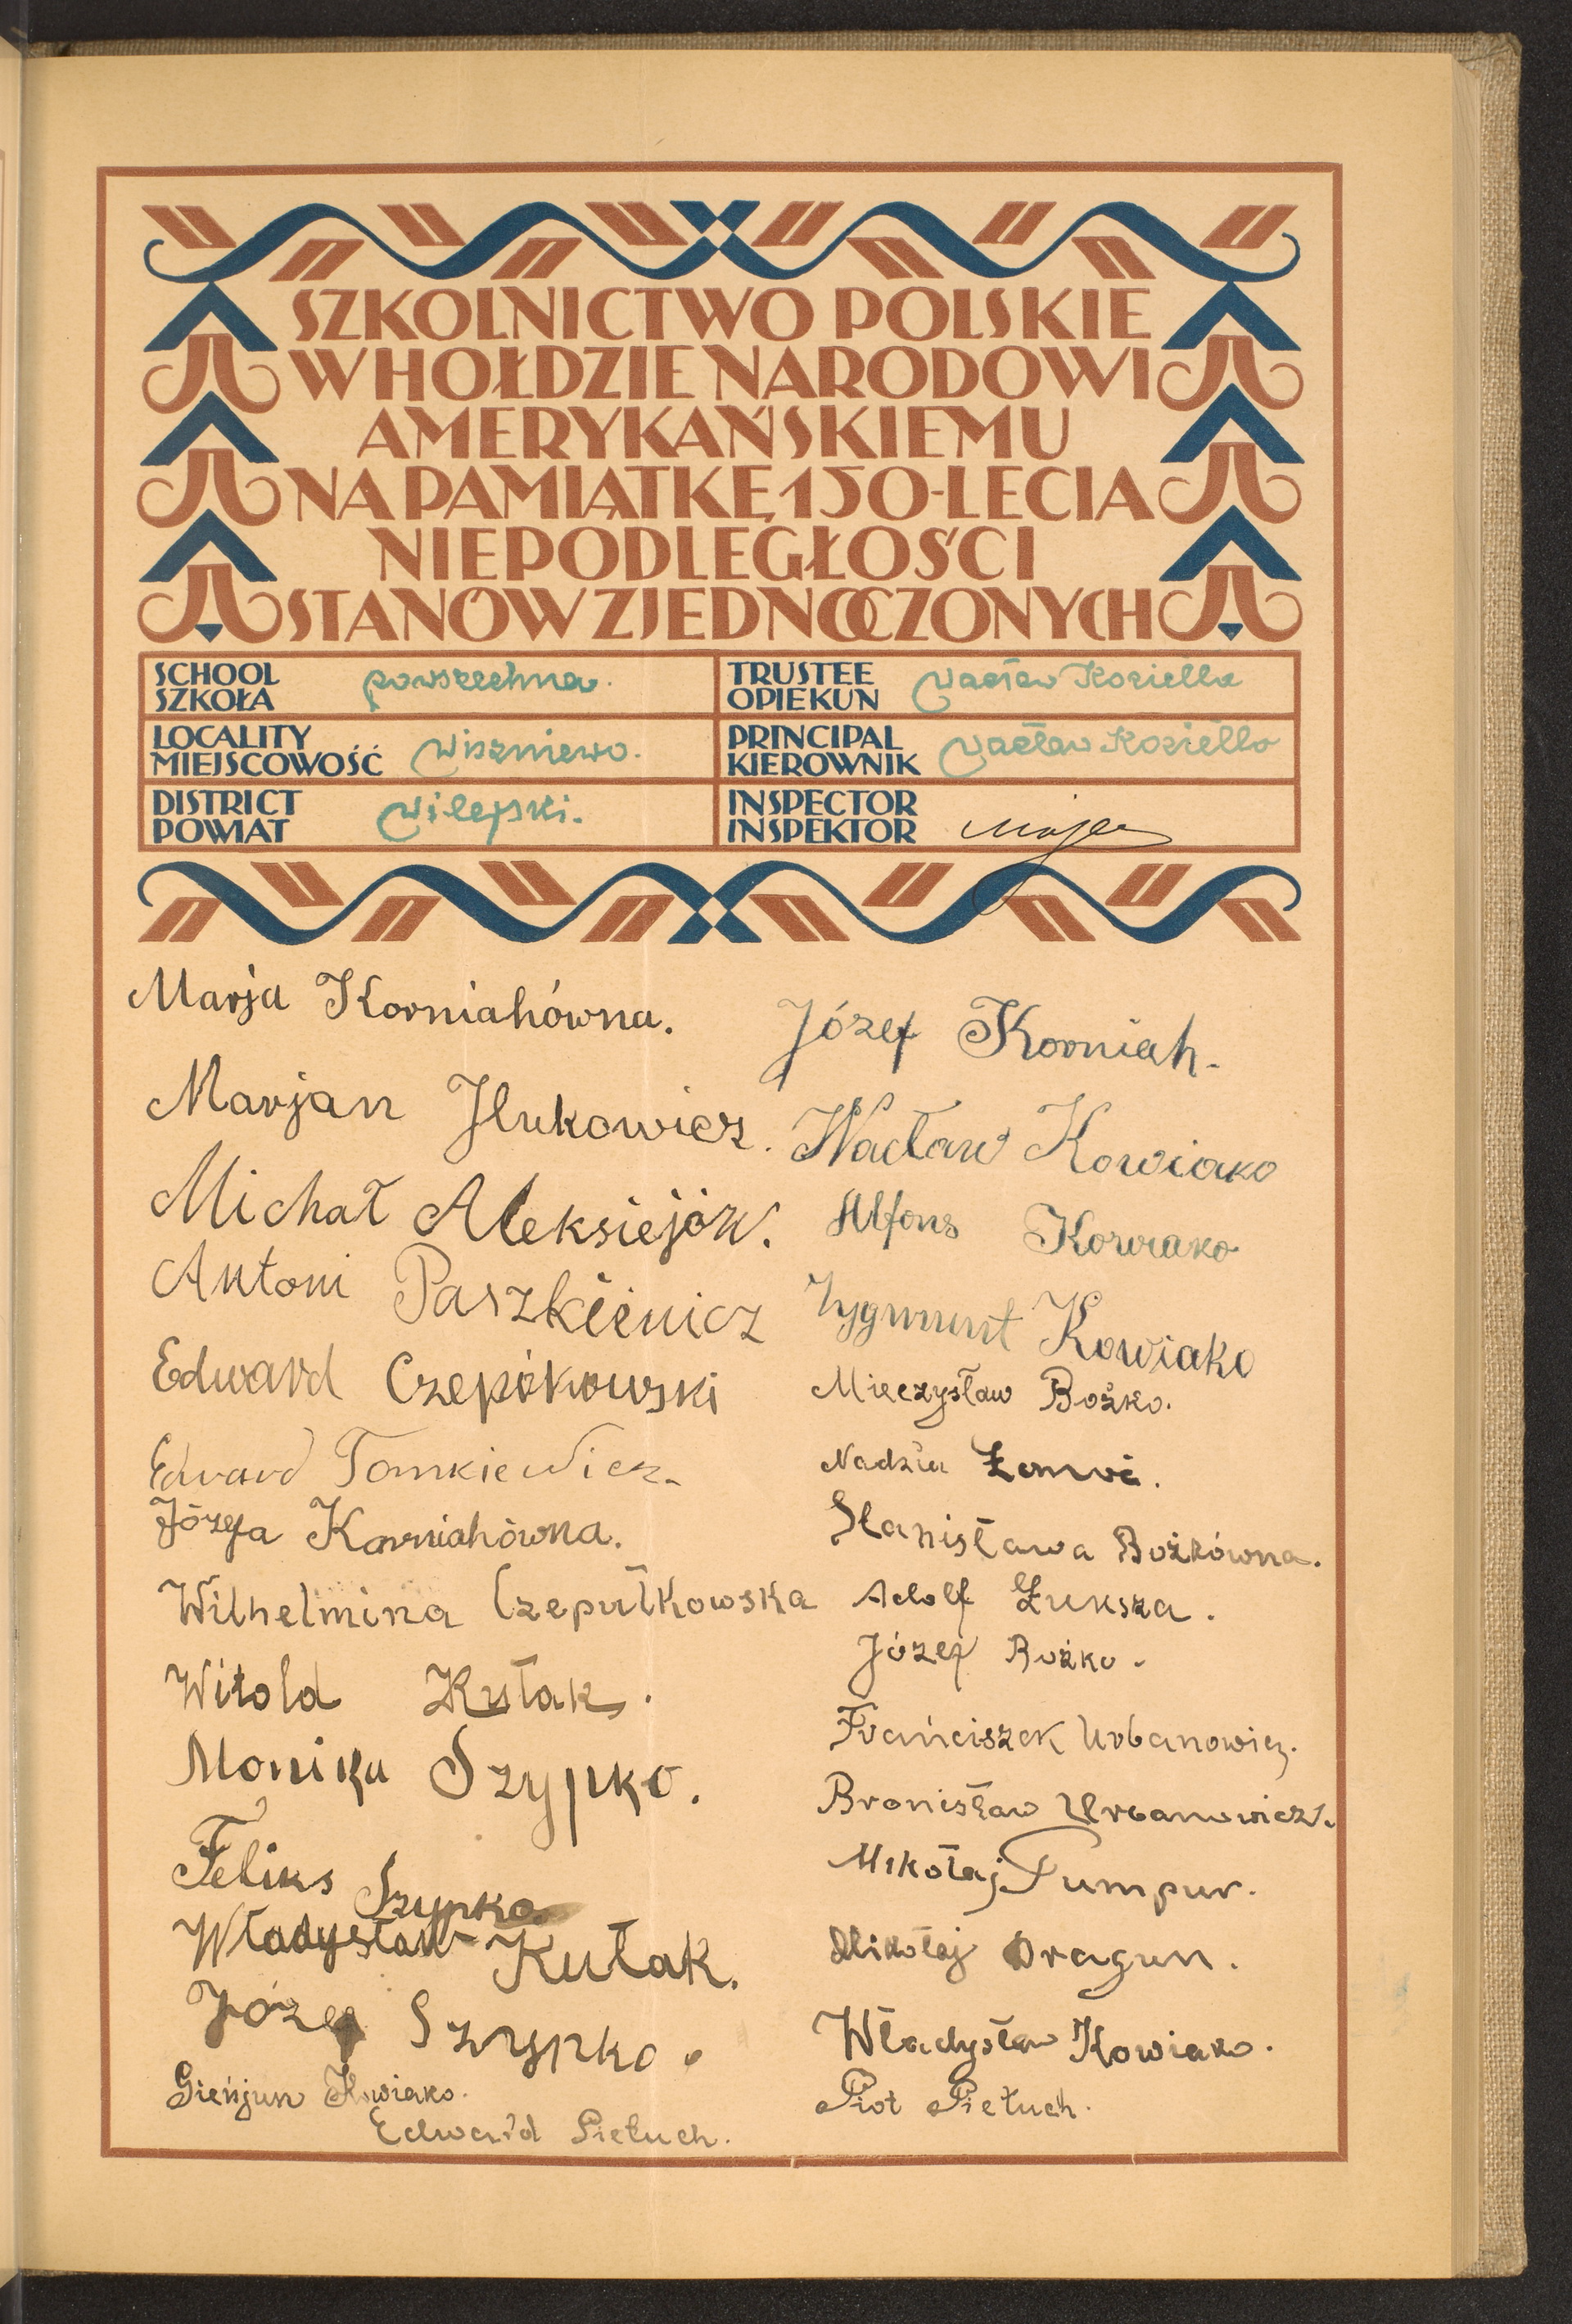 SZKOLNICTWO POLSKIE
W HOŁDZIE NARODOWI
AMERYKAŃSKIEMU
NA PAMIĄTKĘ 150-LECIA
NIEPODLEGŁOŚCI
STANÓW ZJEDNOCZONYCH
SCHOOL
SZKOŁA
powszechna.
TRUSTEE
OPIEKUN
Wacław Koziełło
LOCALITY
MIEJSCOWOŚĆ
Wiszniewo.
PRINCIPAL
KIEROWNIK
Wacław Koziełło
DISTRICT
POWIAT
Wilejski.
INSPECTOR
INSPEKTOR
Marja Korniahówna.
Marjan Ilukowicz.
Michał Aleksiejów.
Antoni Paszkiewicz
Edward Czepókowski
Edward Tomkiewicz.
Józefa Korniahówna.
Wilhelmina Czepułkowska
Witold Kułak.
Monika Szypko.
Feliks Szypko
Władysław Kułak.
Józef Szypko.
Gienjun Kowiako.
Edward Pietuch.
Józef Korniah.
Wacław Kowiako
Alfons Kowiako
Zygmunt Kowiako
Mieczysław Bożko.
Nadzia
Stanisława Bożkówna.
Adolf Łuksza.
Józef Bożko.
Frańciszek Urbanowicz.
Bronisław Urbanowicz.
Mikołaj Pumpur.
Mikołaj Dragun.
Władysław Kowiako.
Piot Pietuch.